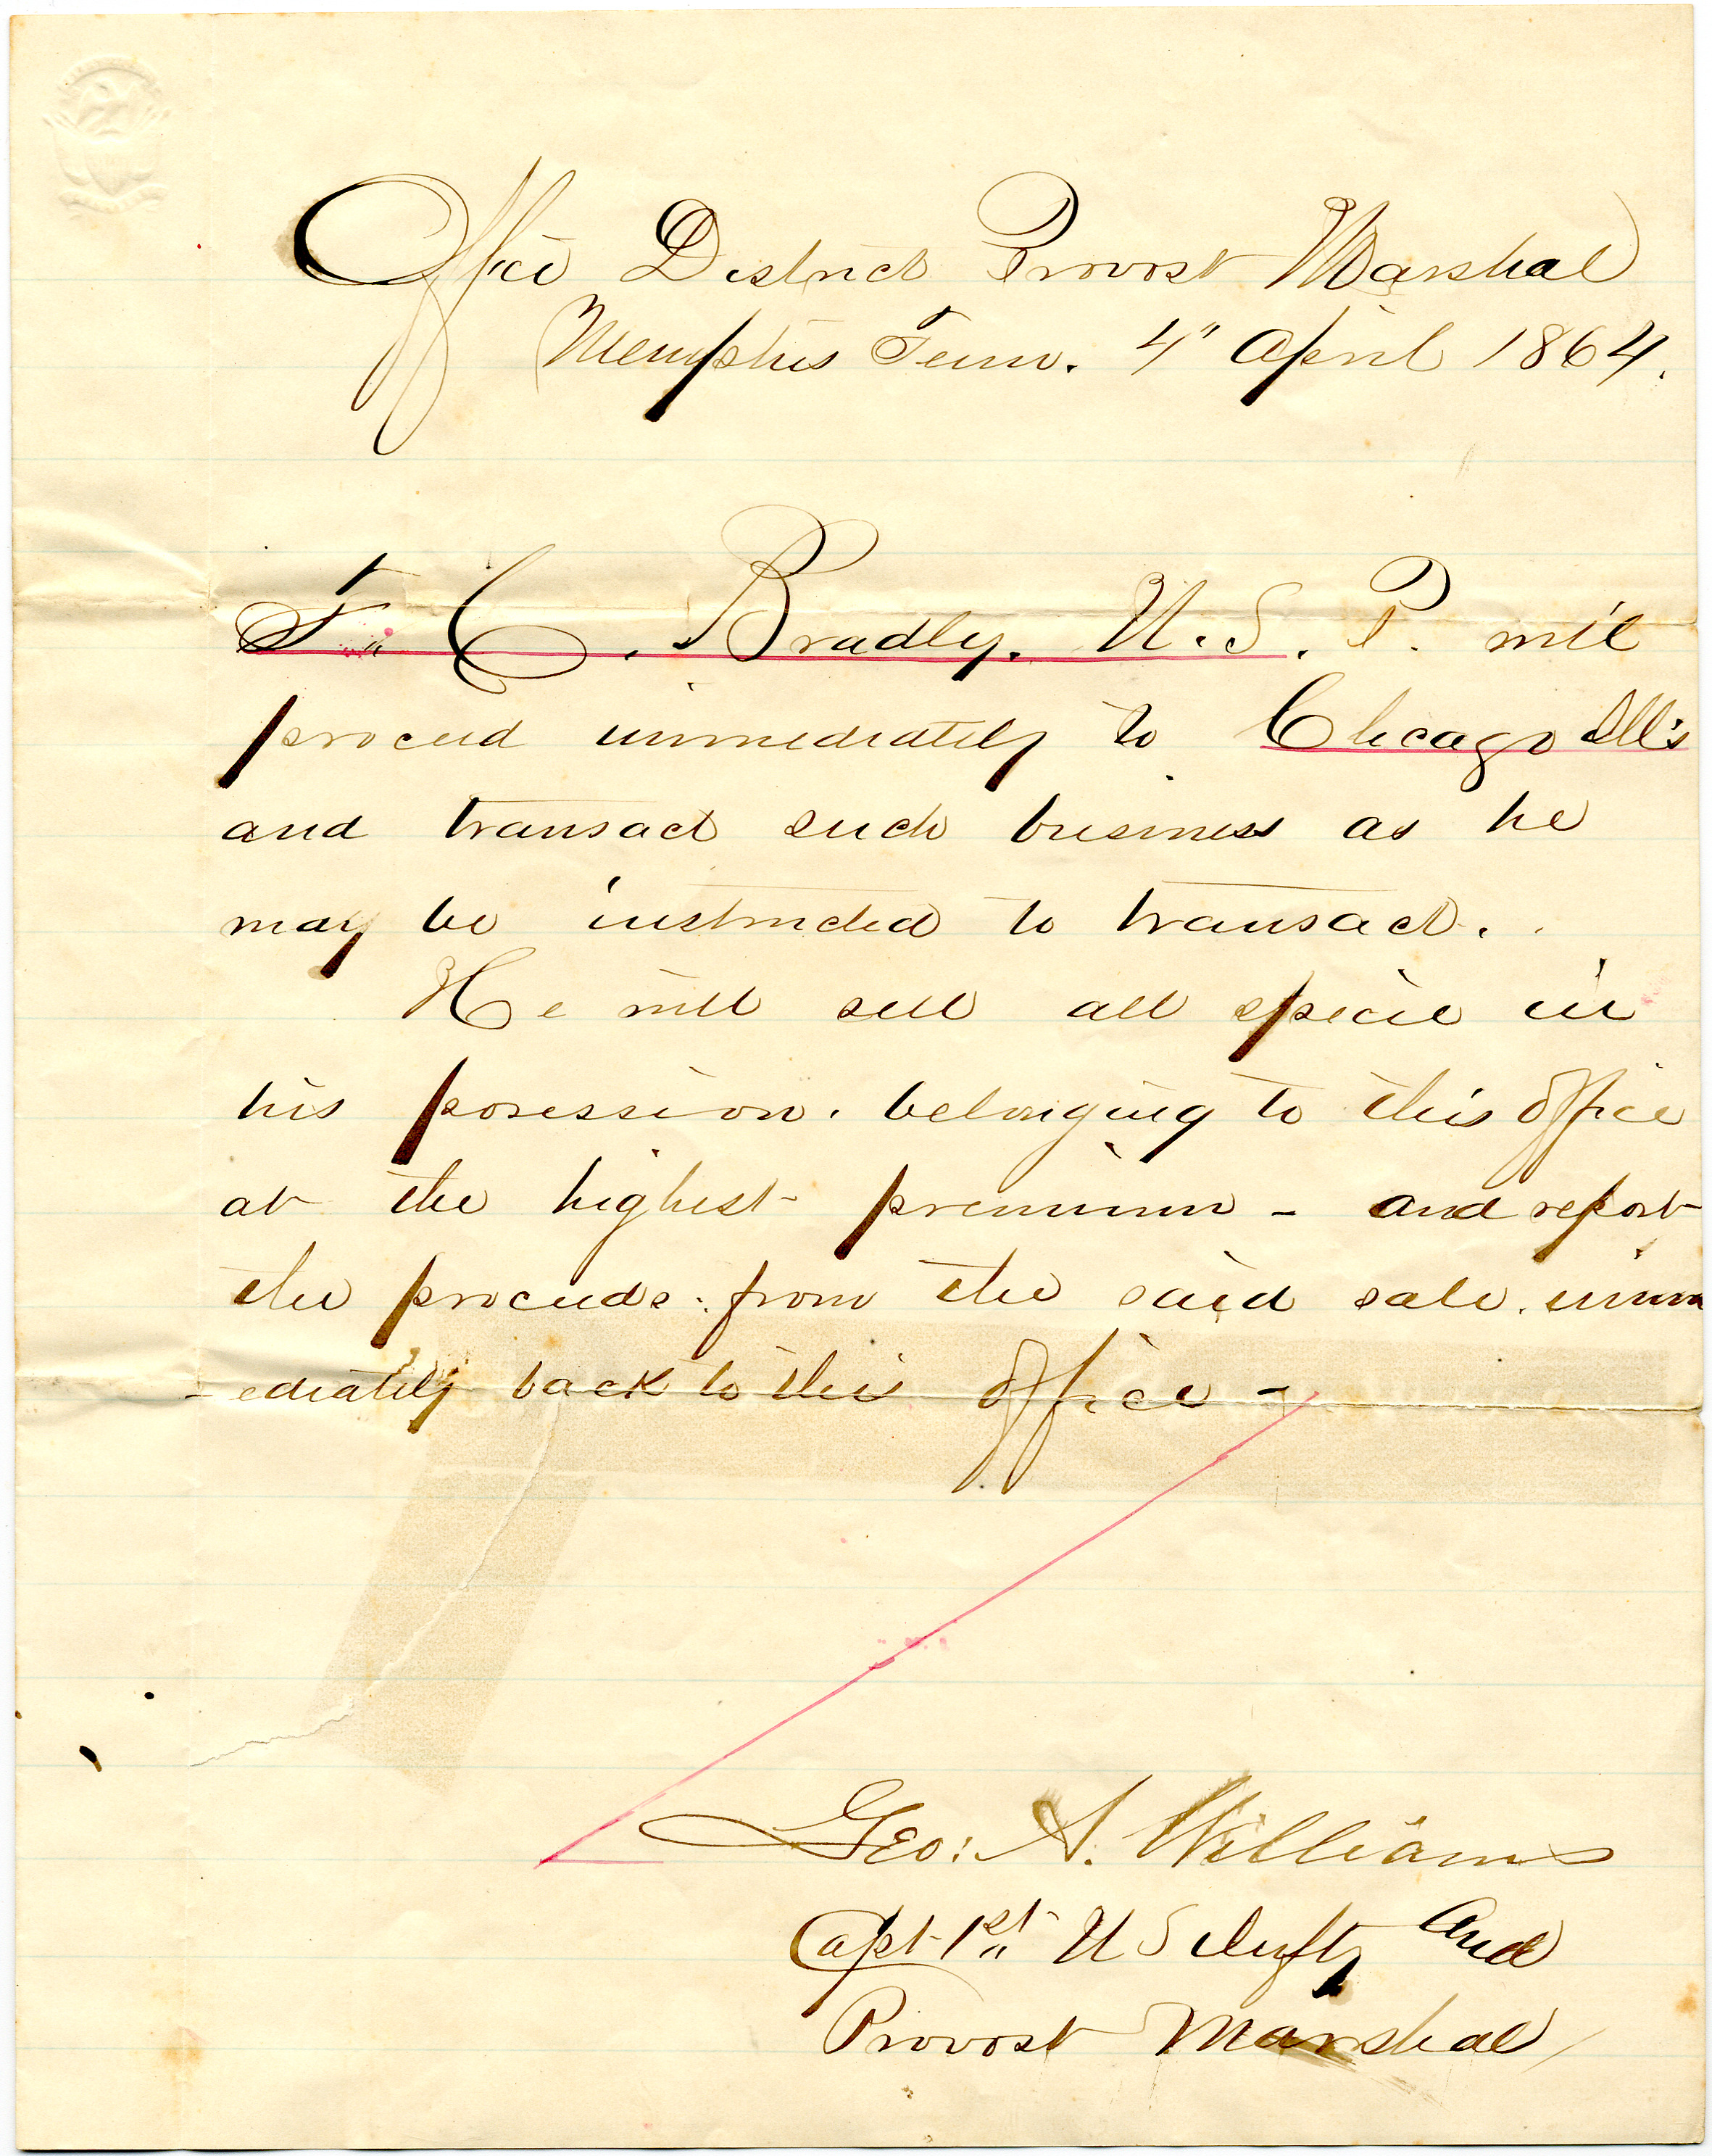 Office District Provost Marshal
Memphis Tenn. 4" April 1864.
F. C. Bradly. U. S. P. will
proceed immediately to Chicago Ills
and transact such business as he
may be instructed to transact.
He will sell all specie in
his posession. belonging to this office
at the highest premium - and report
the proceeds. from the said sale. imm
-ediately back to this office -
Geo: A. Williams
Capt 1st U S Infty and
Provost Marshal